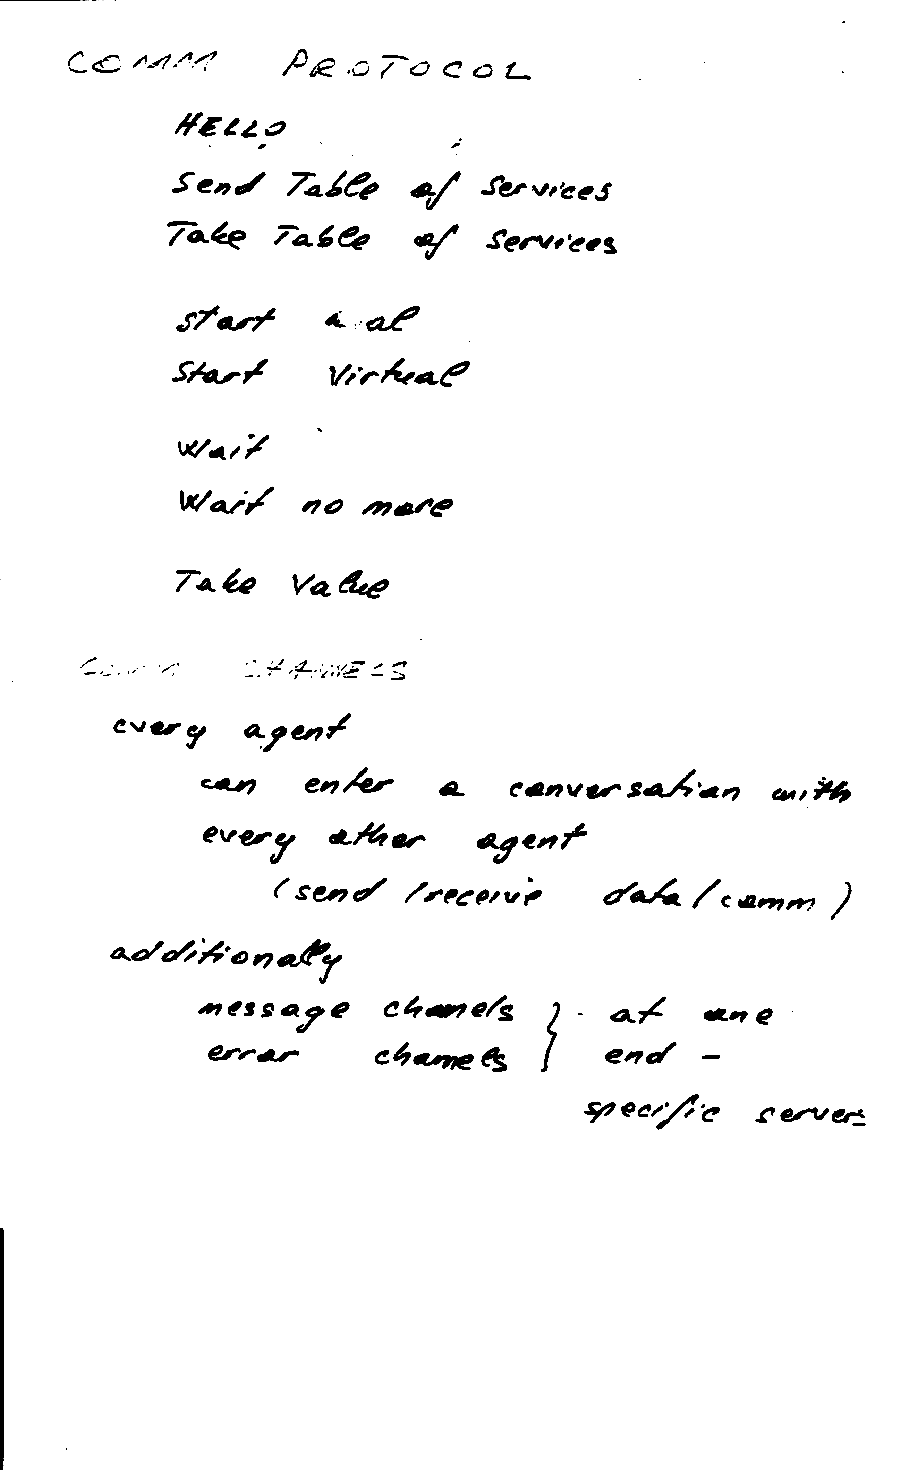 COMM PROTOCOL
HELLO
Send Table of Services
Take Table of Services
Start
Start Virtual
Wait
Wait no more
Take Value
COMM CHANNELS
every agent
can enter a conversation with
every other agent
(send / receive data / comm)
additionally
message channels } - at one
error channels } end -
specific servers